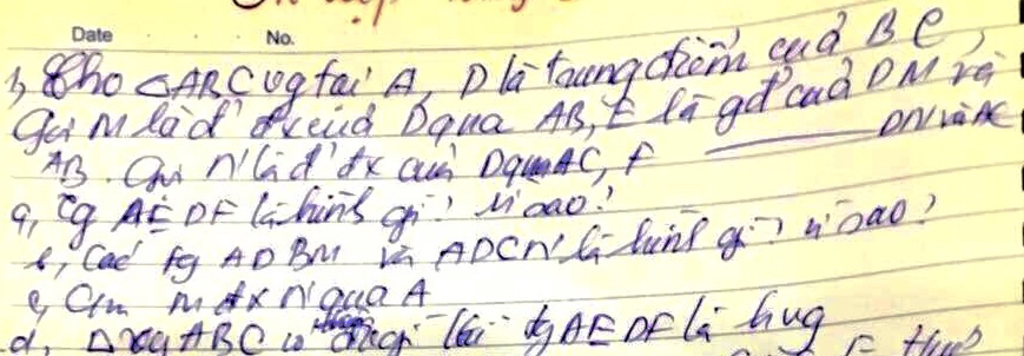 Date No.
1, Cho △ABC vg tại A, D là trung điểm của BC,
Gọi M là đ' đx của D qua AB, E là gđ' của DM và
AB. Gọi N là đ' đx của D qua AC, F ——— DN và AC
a, Tg AEDF là hình gì? Vì sao?
b, Các tg ADBM và ADCN là hình gì? Vì sao?
c, Cm M đx N qua A
d, △vg ABC có đk gì thì tg AEDF là hvg